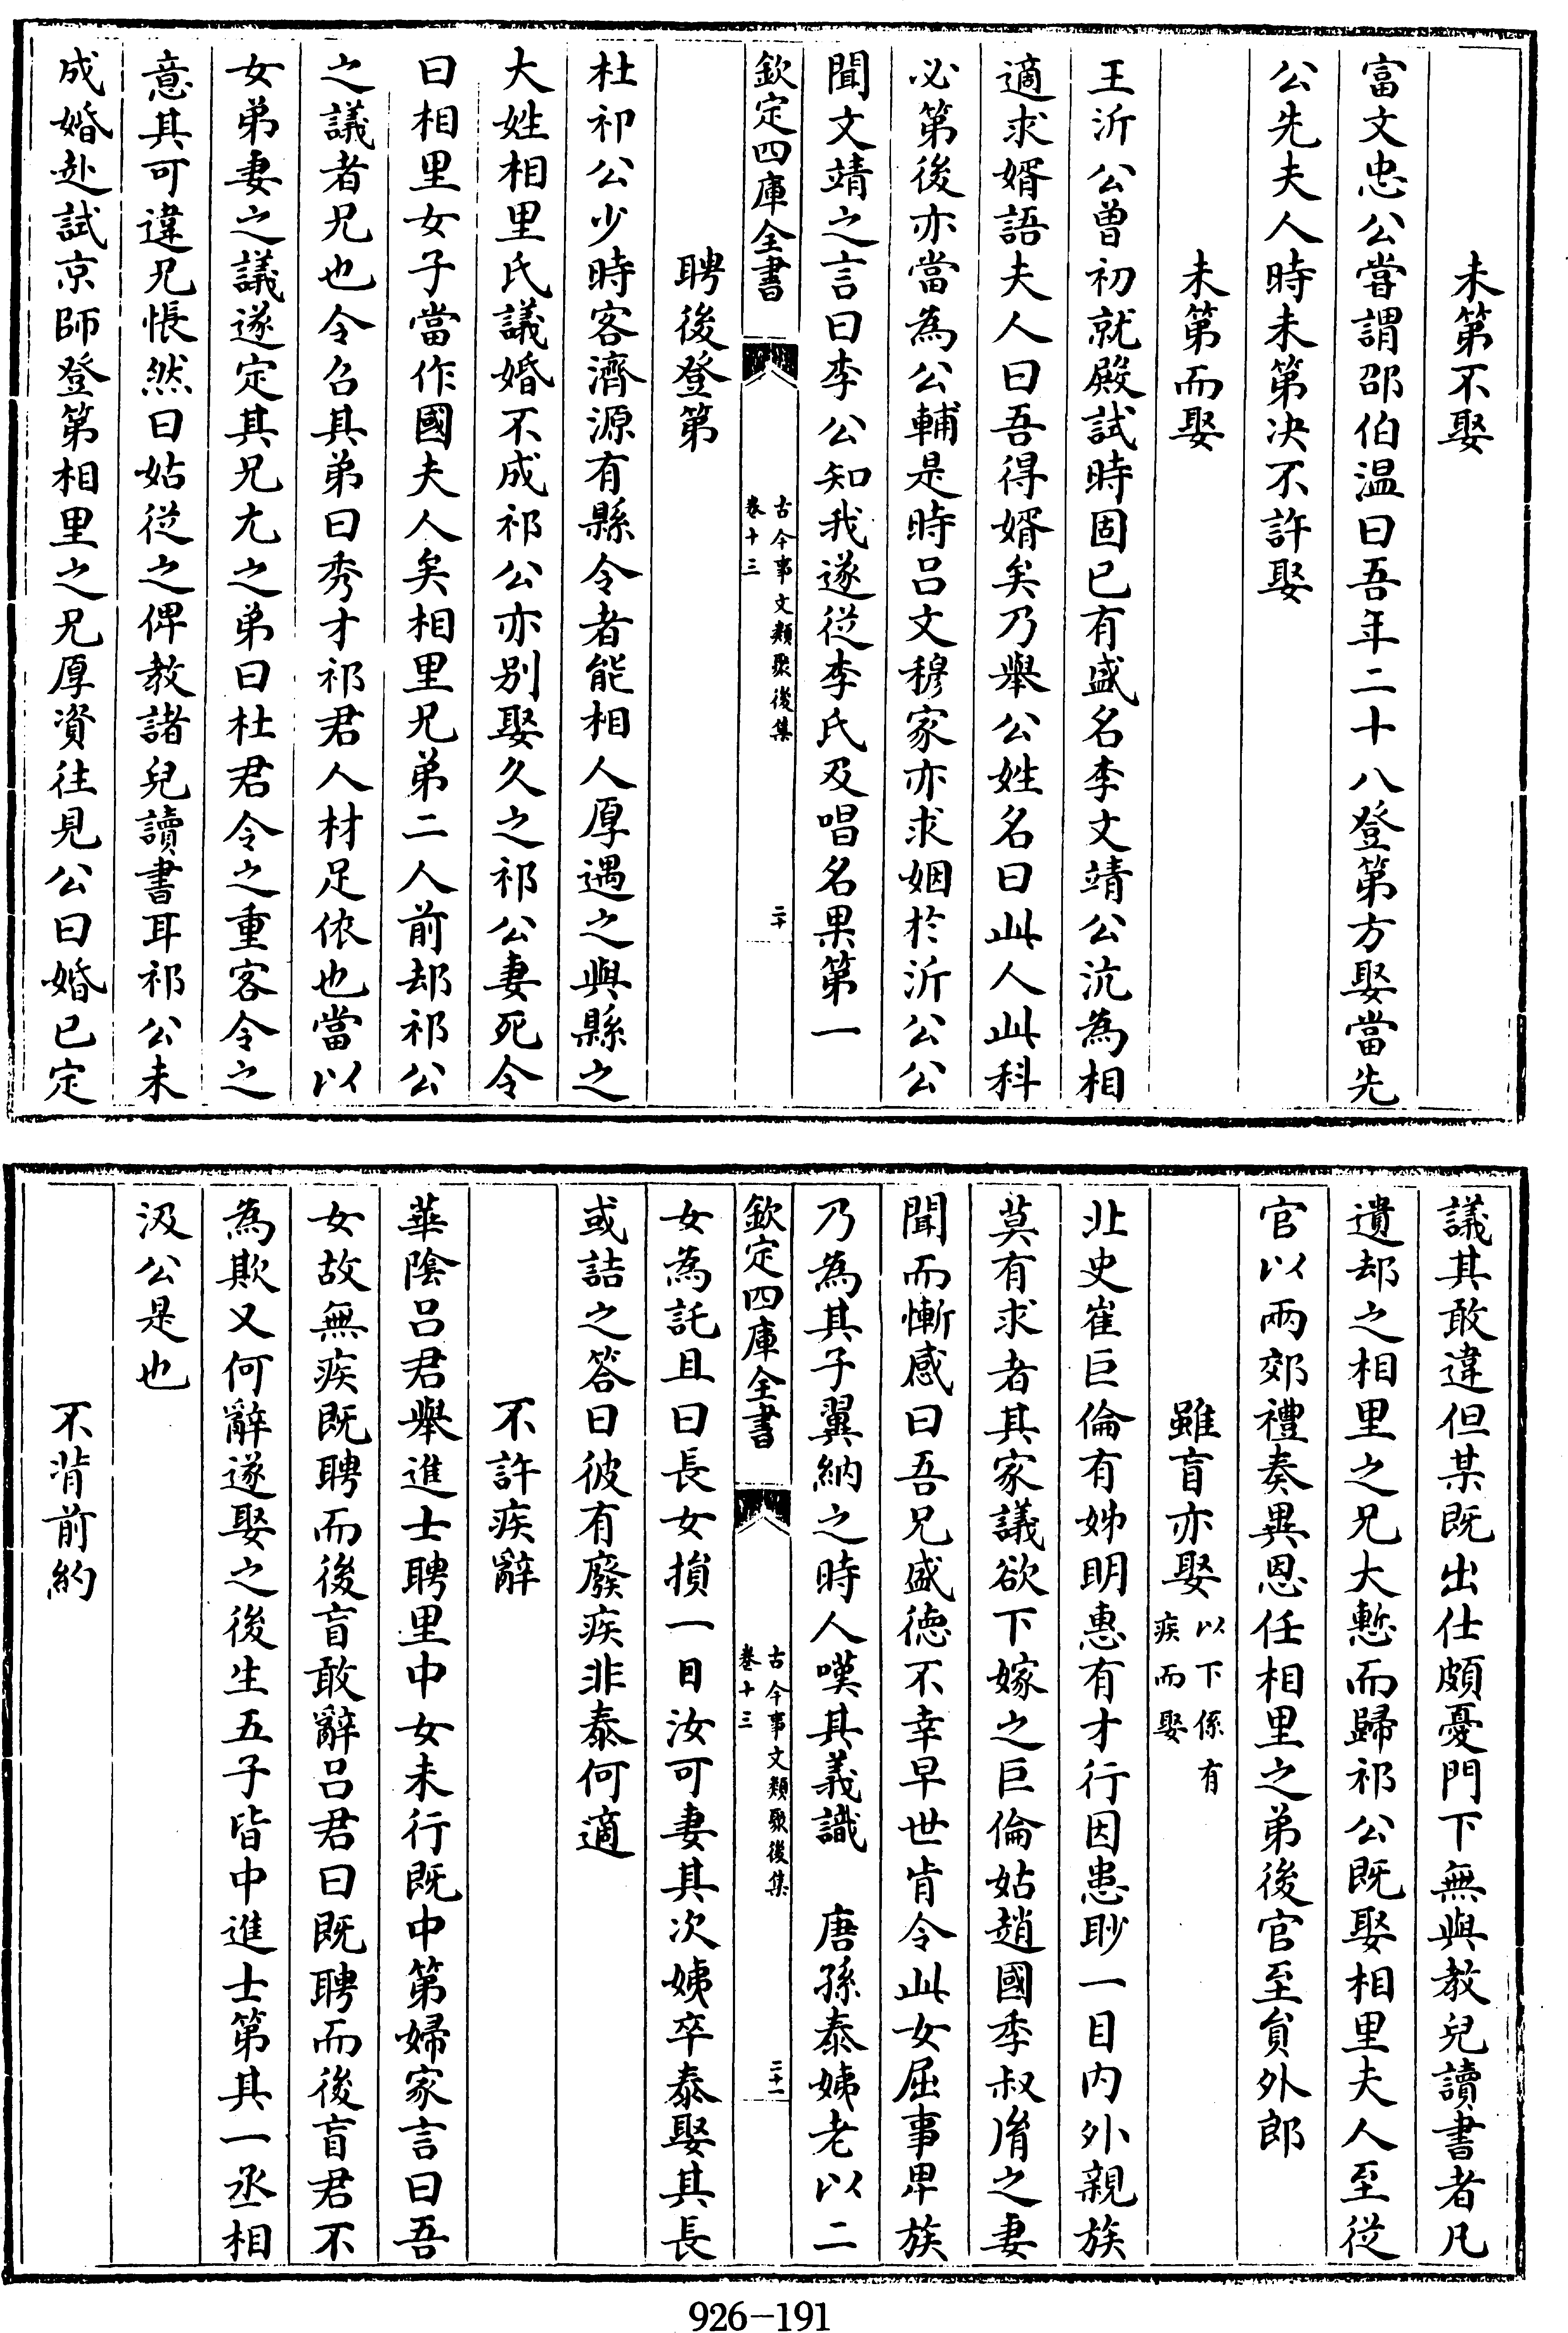 未第不娶
富文忠公嘗謂邵伯温曰吾年二十八登第方娶當先
公先夫人時未第决不許娶
未第而娶
王沂公曾初就殿試時固已有盛名李文靖公沆為相
適求婿語夫人曰吾得婿矣乃舉公姓名曰此人此科
必第後亦當為公輔是時吕文穆家亦求姻於沂公公
聞文靖之言曰李公知我遂従李氏及唱名果第一
欽定四庫全書
古今事文類聚後集
卷十三
二十
聘後登第
杜祁公少時客濟源有縣令者能相人厚遇之與縣之
大姓相里氏議婚不成祁公亦别娶久之祁公妻死令
曰相里女子當作國夫人矣相里兄弟二人前却祁公
之議者兄也令召其弟曰秀才祁君人材足依也當以
女弟妻之議遂定其兄尢之弟曰杜君令之重客令之
意其可違兄悵然曰姑従之俾教諸兒讀書耳祁公未
成婚赴試京師登第相里之兄厚資往見公曰婚已定
議其敢違但某既出仕頗憂門下無與教兒讀書者凡
遺却之相里之兄大慙而歸祁公既娶相里夫人至従
官以兩郊禮奏異恩任相里之弟後官至貟外郎
雖盲亦娶
以下係有
疾而娶
北史崔巨倫有姊明惠有才行因患眇一目内外親族
莫有求者其家議欲下嫁之巨倫姑趙國李叔㣧之妻
聞而慚感曰吾兄盛徳不幸早世肯令此女屈事卑族
乃為其子翼納之時人嘆其義識　唐孫泰姨老以二
欽定四庫全書
古今事文類聚後集
卷十三
二十一
女為託且曰長女損一目汝可妻其次姨卒泰娶其長
或詰之答曰彼有廢疾非泰何適
不許疾辭
華陰吕君舉進士聘里中女未行既中第婦家言曰吾
女故無疾既聘而後盲敢辭吕君曰既聘而後盲君不
為欺又何辭遂娶之後生五子皆中進士第其一丞相
汲公是也
不背前約
926-191